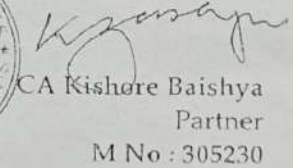 CA Kishore Baishya
Partner
M No : 305230